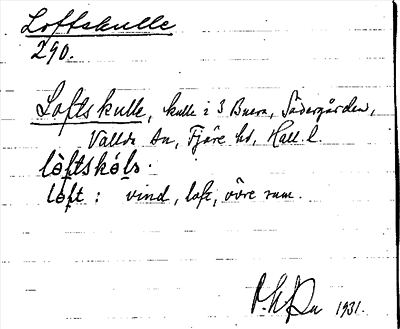 Loftskulle
290.
Loftskulle, kulle i 3 Buera, Södergården,
Vallda sn, Fjäre hd, Hall. l.
lòftskólə.
lòft: vind, loft, övre rum.
1931.